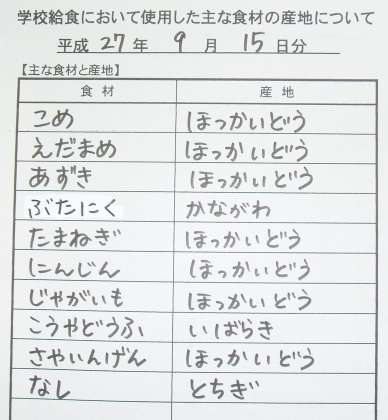 学校給食において使用した主な食材の産地について
平成 27 年 9 月 15 日分
【主な食材と産地】
食材 産地
こめ ほっかいどう
えだまめ ほっかいどう
あずき ほっかいどう
ぶたにく かながわ
たまねぎ ほっかいどう
にんじん ほっかいどう
じゃがいも ほっかいどう
こうやどうふ いばらき
さやいんげん ほっかいどう
なし とちぎ